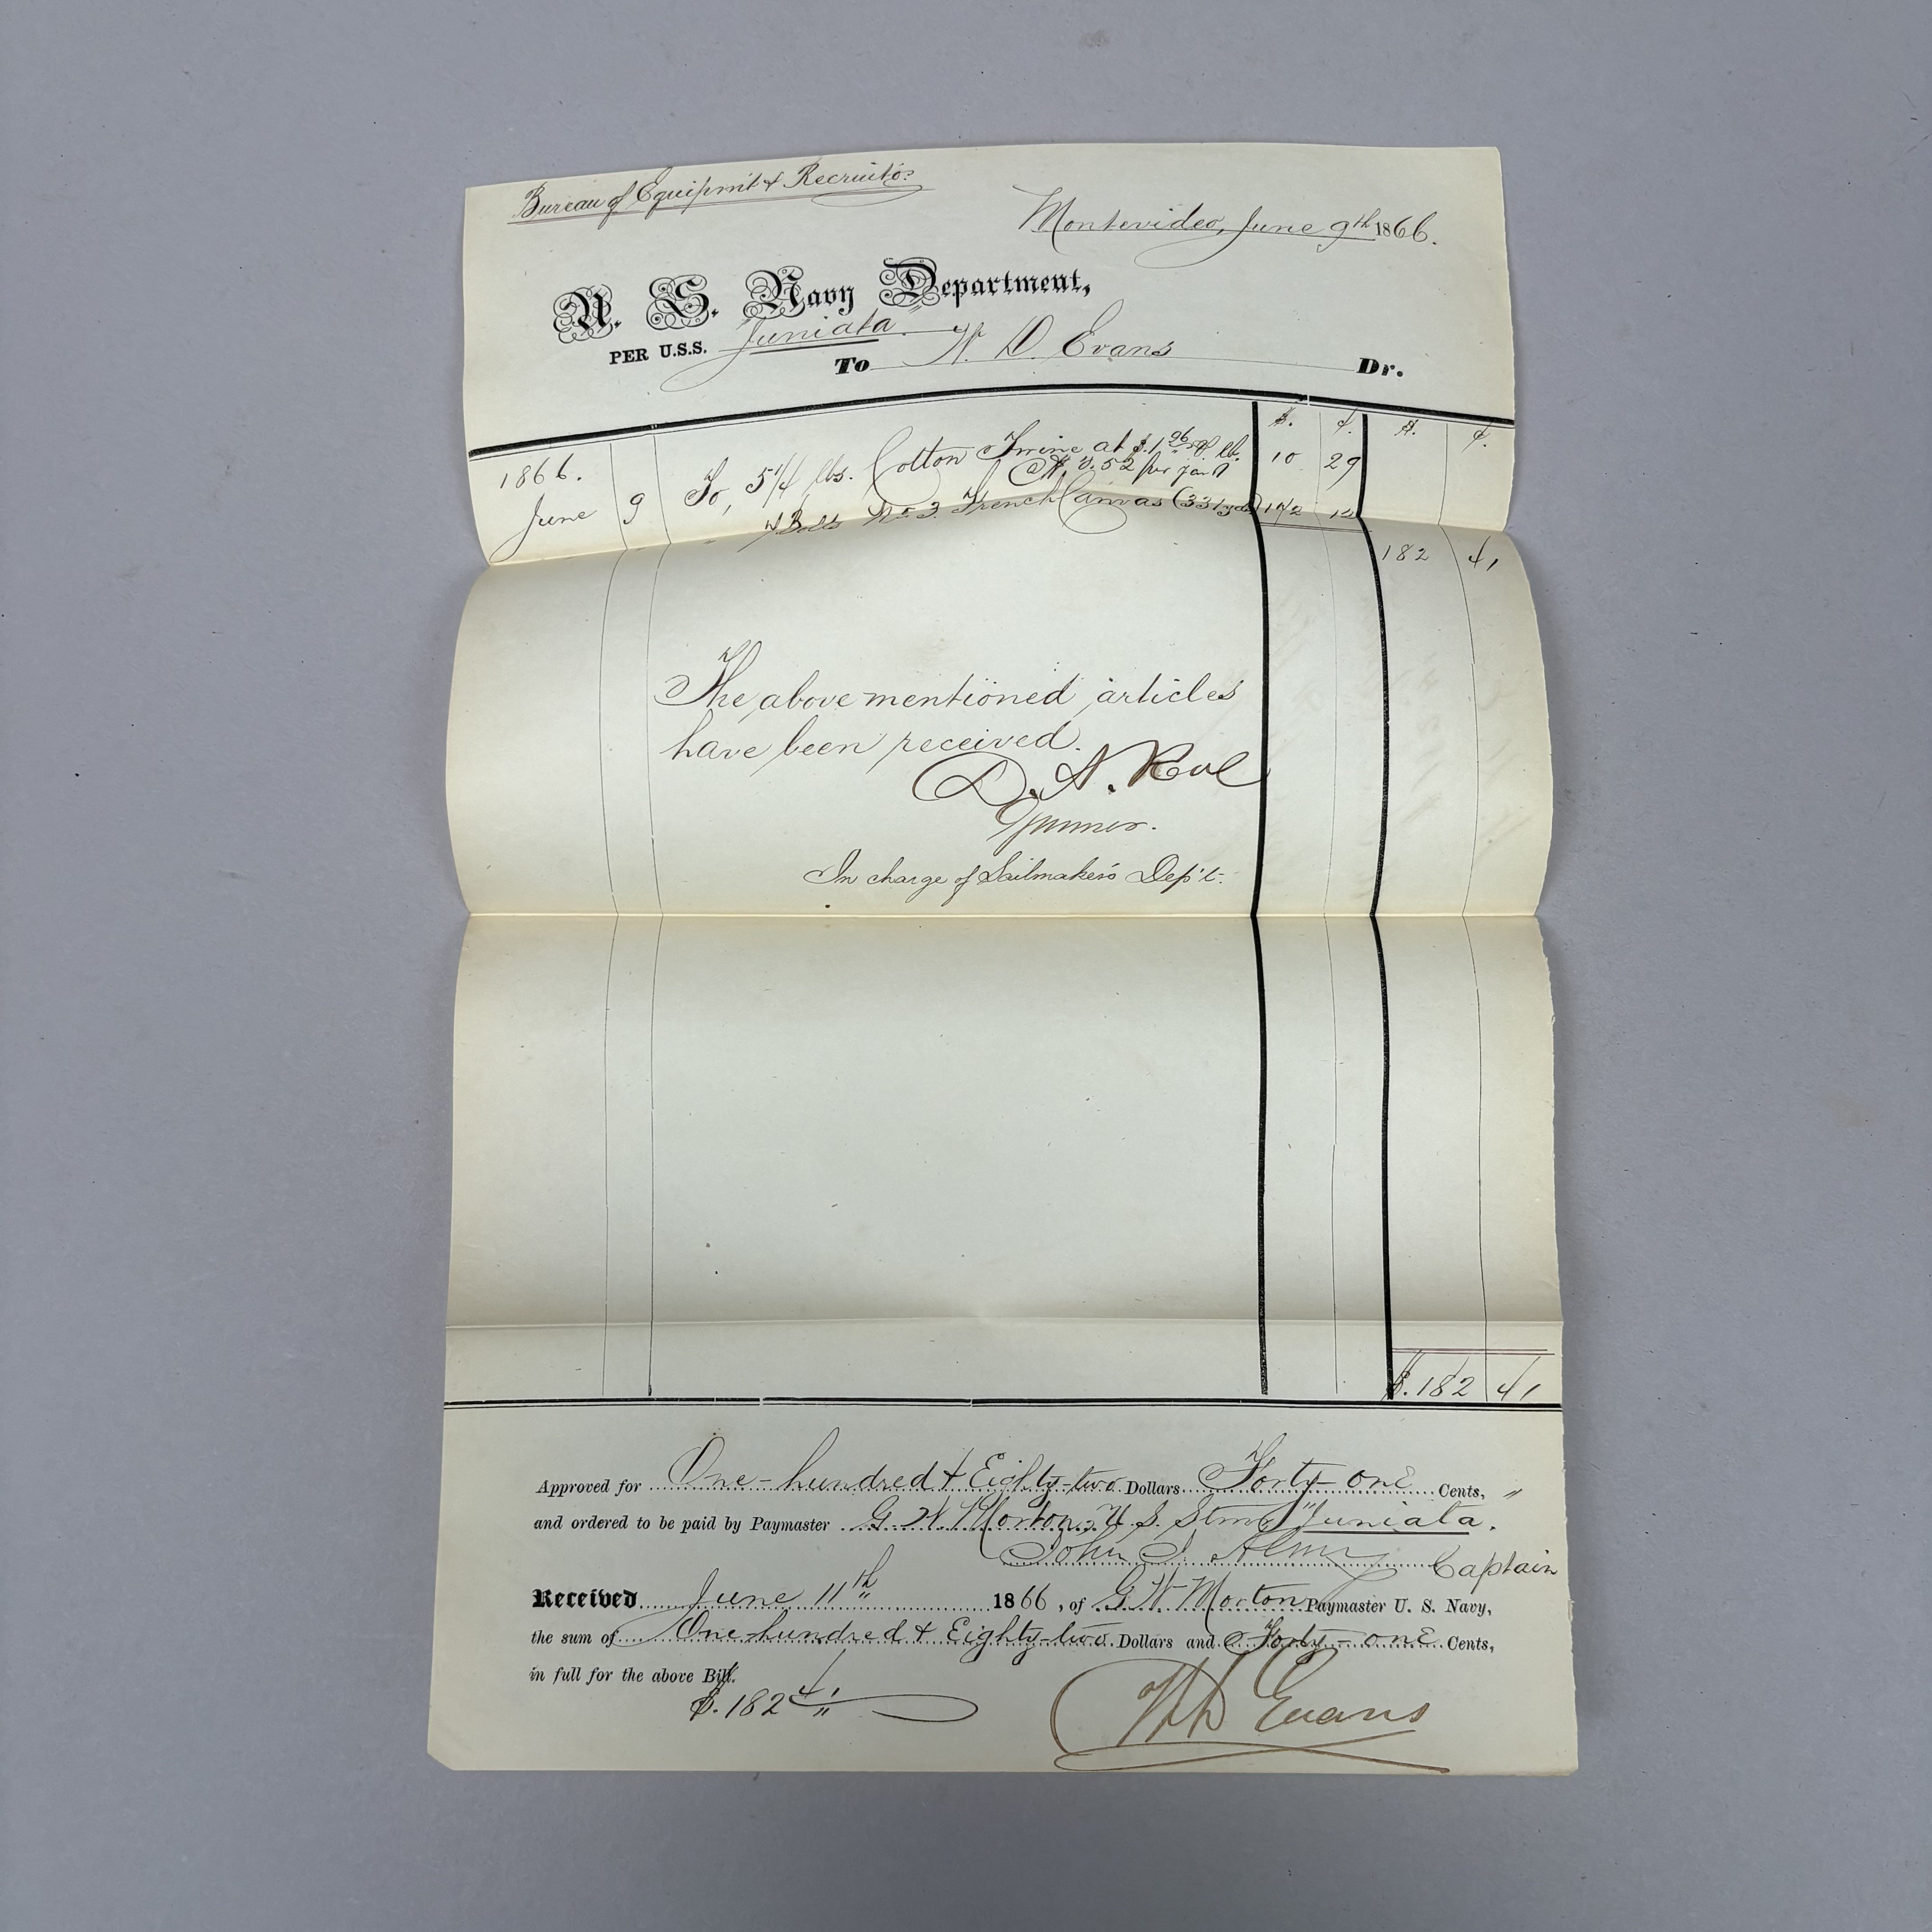 Bureau of Equipm't & Recruit'g
Montevideo, June 9th 1866.
U. S. Navy Department,
PER U.S.S. Juniata.
To W. D. Evans Dr.
$. ¢. $. ¢.
1866.
June 9 To, 5 1/4 lbs. Cotton Twine at $.1.96 P lb. 10 29
@ $.0.52 per yard
" " 7 Bolts No 3. French Canvas (331 yds) 172 12
182 41
The above mentioned articles
have been received.
D. A. Roe
Gunner.
In charge of Sailmaker's Dep't.
$.182 41
Approved for One-hundred & Eighty-two Dollars Forty-one Cents,
and ordered to be paid by Paymaster G. W. Morton, U. S. Stm'r "Juniata".
John J. Almy Captain
Received June 11th 1866, of G. W. Morton Paymaster U. S. Navy,
the sum of One-hundred & Eighty-two Dollars and Forty-one Cents,
in full for the above Bill.
$.182 41
W D Evans